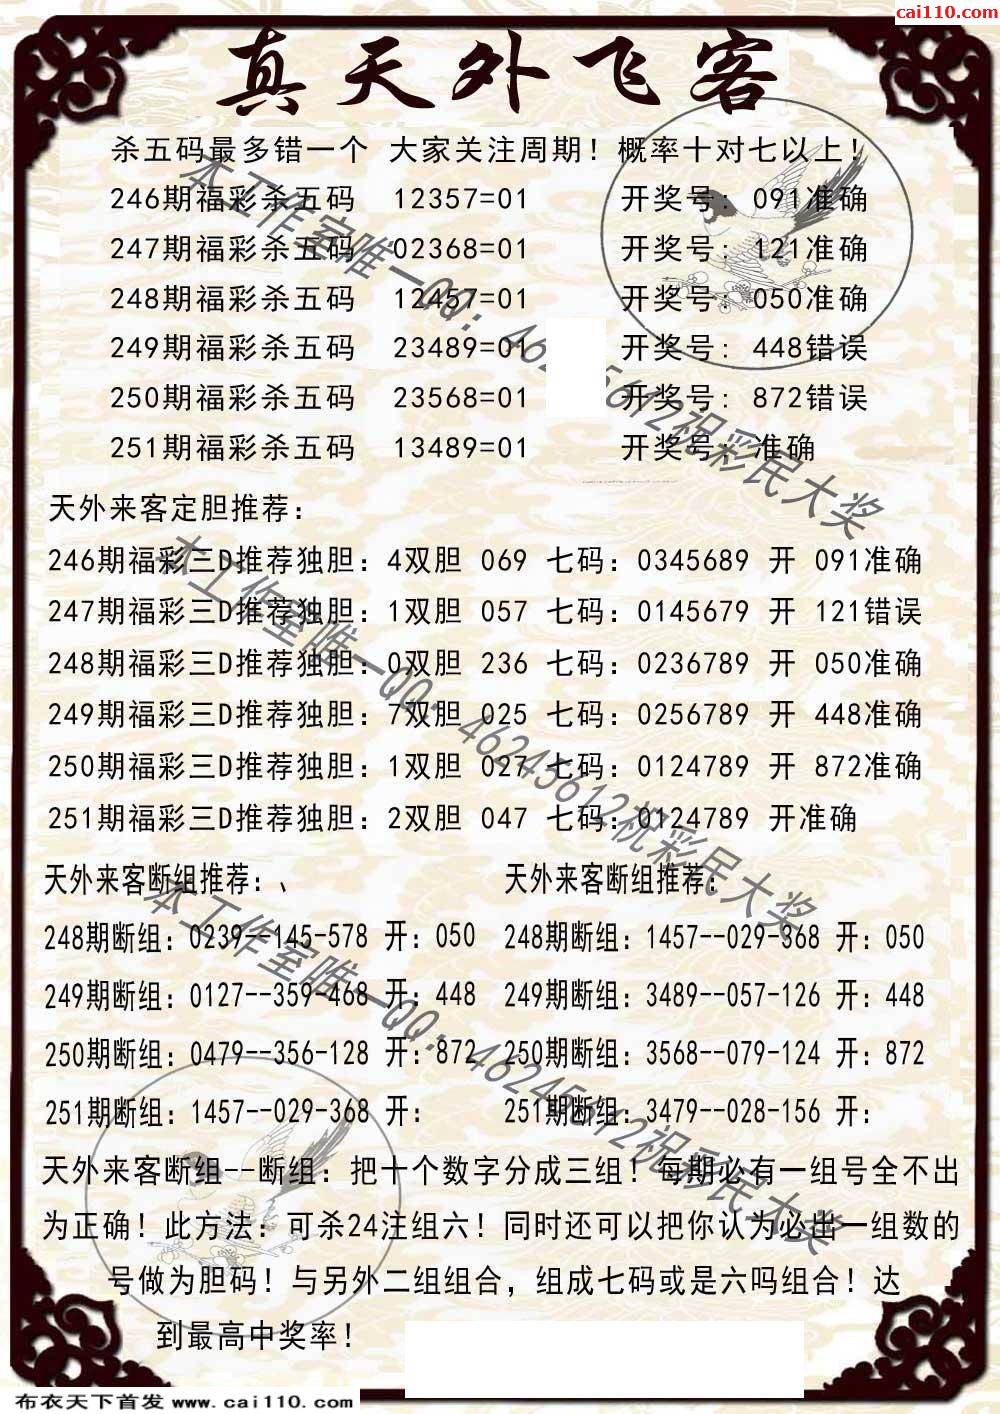 cai110.com
真天外飞客
杀五码最多错一个 大家关注周期！概率十对七以上！
246期福彩杀五码 12357=01 开奖号：091准确
247期福彩杀五码 02368=01 开奖号：121准确
248期福彩杀五码 12457=01 开奖号：050准确
249期福彩杀五码 23489=01 开奖号：448错误
250期福彩杀五码 23568=01 开奖号：872错误
251期福彩杀五码 13489=01 开奖号：准确
天外来客定胆推荐：
246期福彩三D推荐独胆：4双胆 069 七码：0345689 开 091准确
247期福彩三D推荐独胆：1双胆 057 七码：0145679 开 121错误
248期福彩三D推荐独胆：0双胆 236 七码：0236789 开 050准确
249期福彩三D推荐独胆：7双胆 025 七码：0256789 开 448准确
250期福彩三D推荐独胆：1双胆 027 七码：0124789 开 872准确
251期福彩三D推荐独胆：2双胆 047 七码：0124789 开准确
天外来客断组推荐：、 天外来客断组推荐：
248期断组：0239--145-578 开：050 248期断组：1457--029-368 开：050
249期断组：0127--359-468 开：448 249期断组：3489--057-126 开：448
250期断组：0479--356-128 开：872 250期断组：3568--079-124 开：872
251期断组：1457--029-368 开： 251期断组：3479--028-156 开：
天外来客断组--断组：把十个数字分成三组！每期必有一组号全不出
为正确！此方法：可杀24注组六！同时还可以把你认为必出一组数的
号做为胆码！与另外二组组合，组成七码或是六吗组合！达
到最高中奖率！
本工作室唯一QQ：46245612祝彩民大奖
本工作室唯一QQ：46245612祝彩民大奖
本工作室唯一QQ：46245612祝彩民大奖
布衣天下首发 www.cai110.com